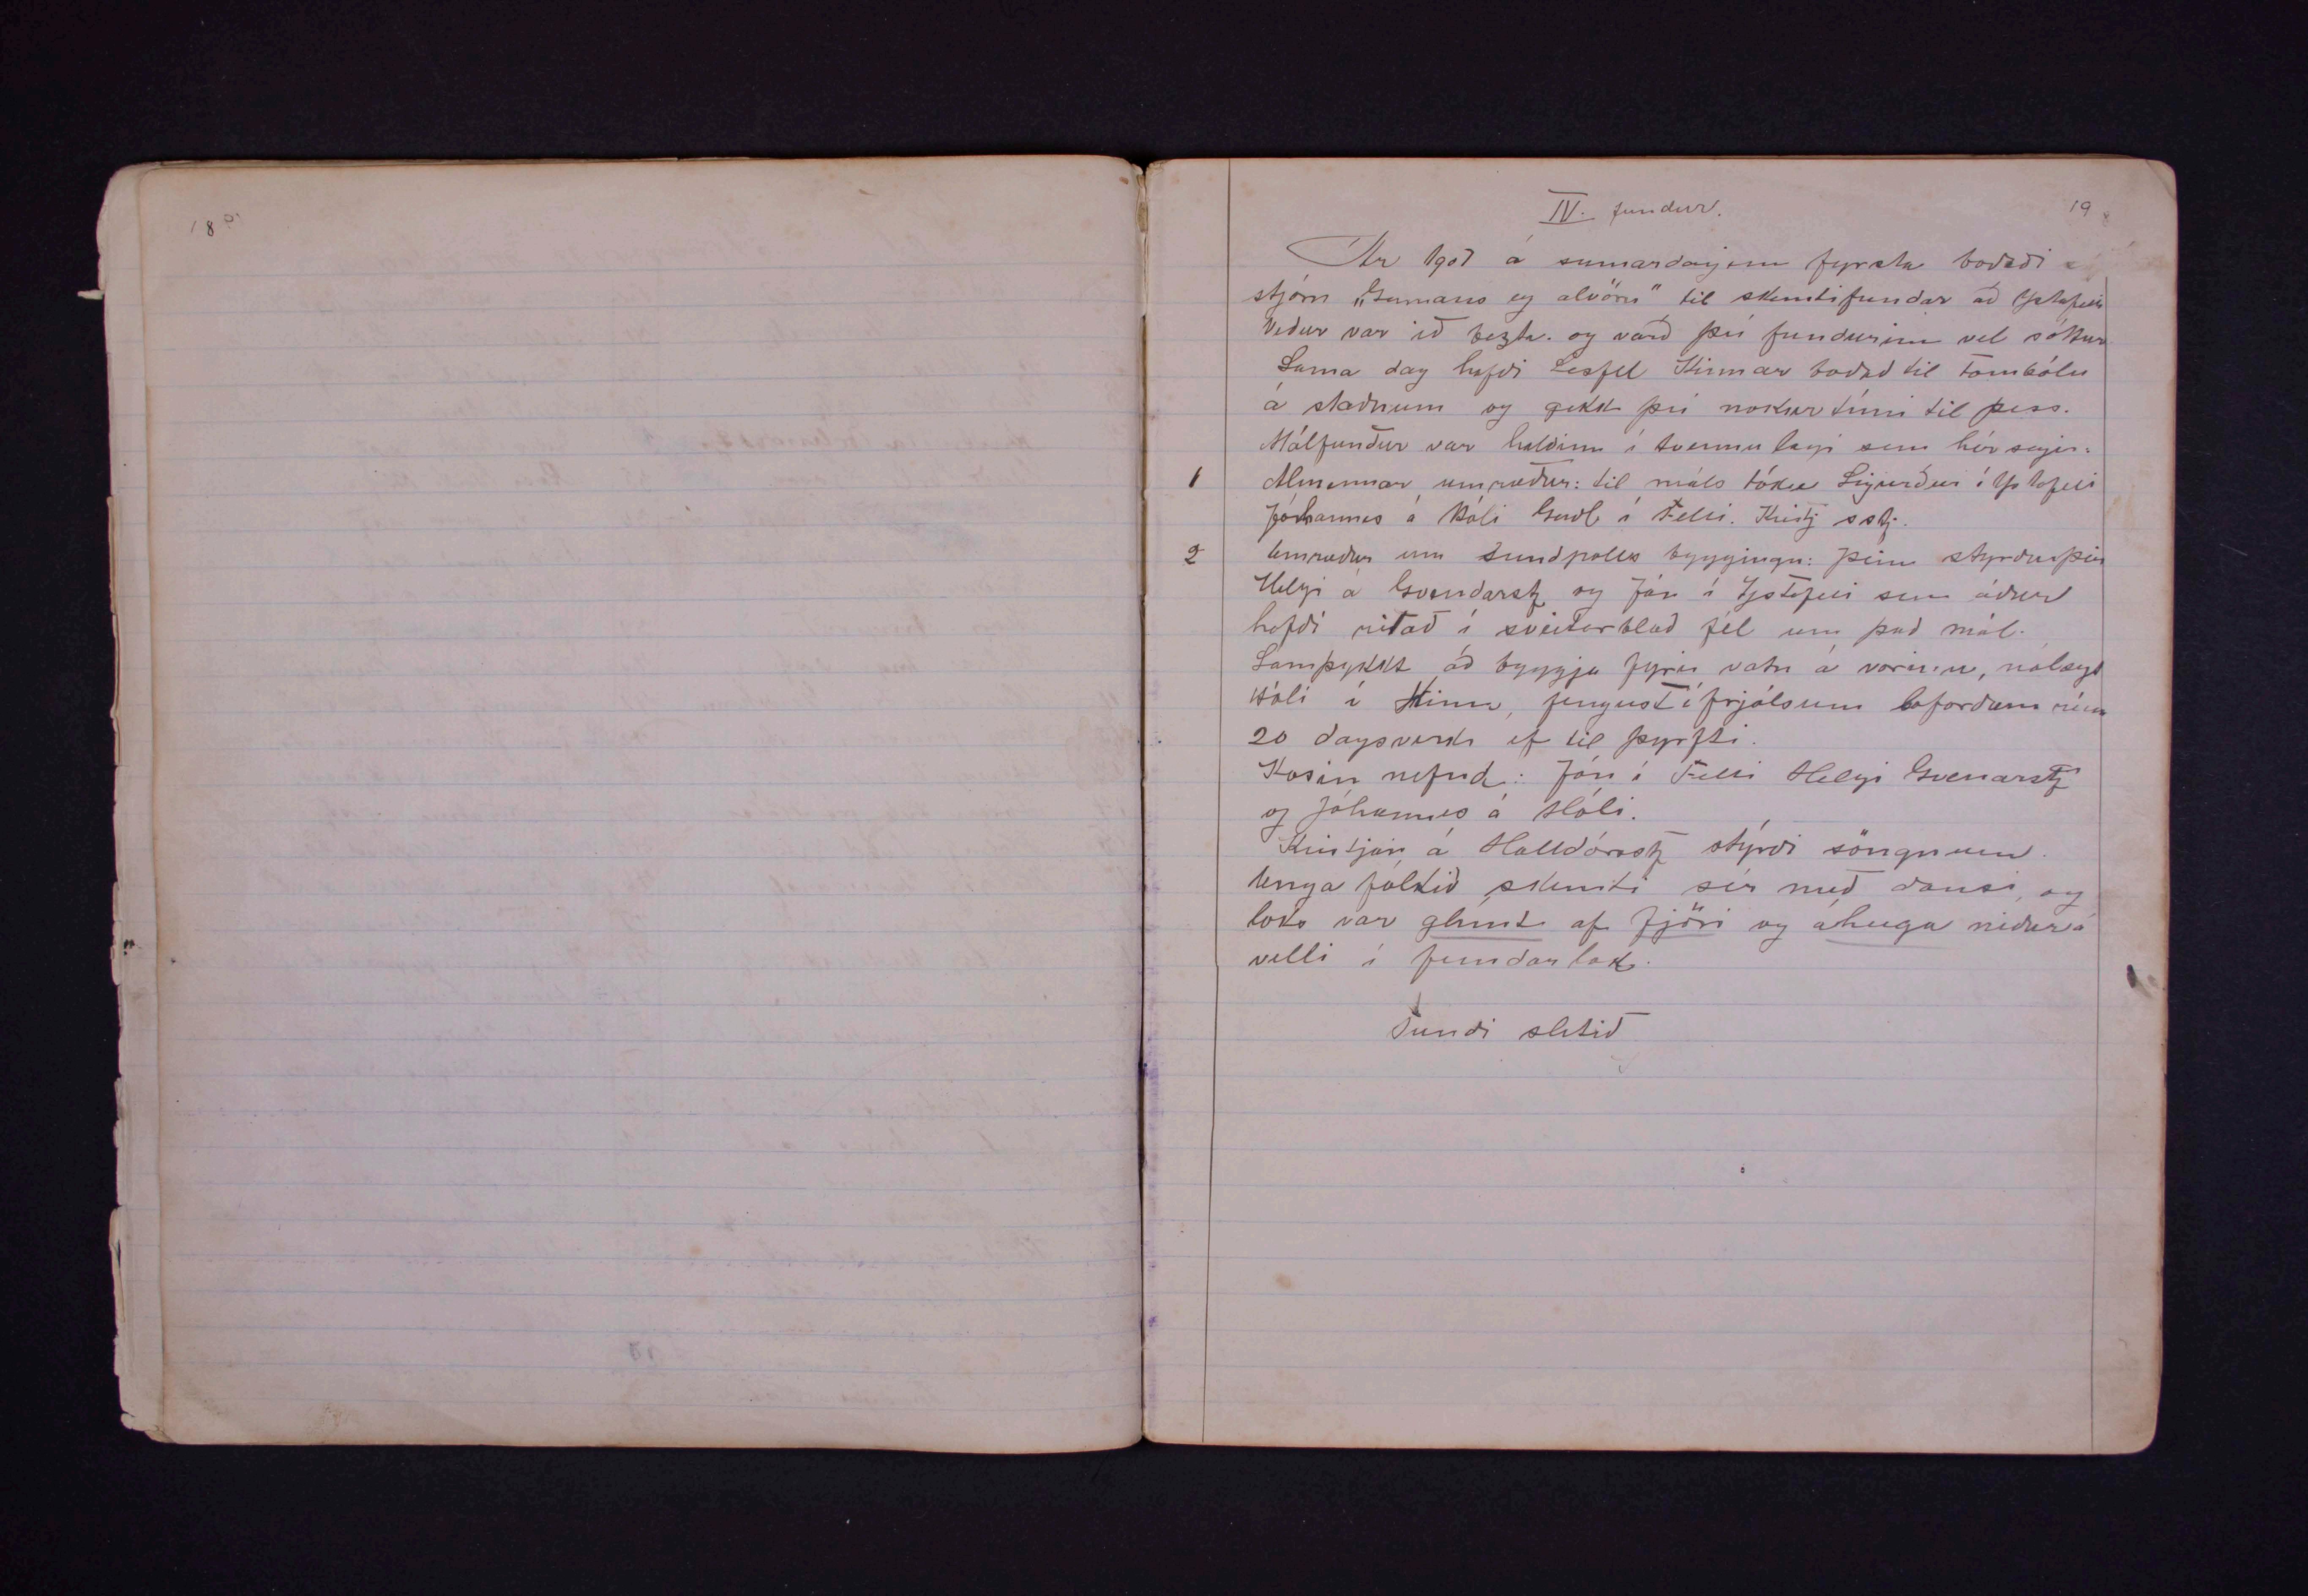 18
IV. fundur.
19
Ár 1907 á sumardaginn fyrsta boðaði
stjórn „Gamans og alvöru" til skemtifundar að Ystafelli
Veður var ið bezta. og varð því fundurinn vel sóttur
Sama dag hafði Lesfél Kinnar boðað til tombólu
á staðnum og gekk því nokkur tími til þess.
Málfundur var haldinn í tvennu lagi sem hér segir:
1 Almennar umræður: til máls tóku Sigurður í Ystafelli
Jóhannes á Hóli Guðl í Felli. Kristj sstj.
2 Umræður um sundpolls byggingu: þeim stýrðu þeir
Helgi á Gvendarst og Jón í Ystafelli sem áður
hafði ritað í sveitarblað fél um það mál.
Samþykkt að byggja fyrir vatn á vorinu, nálægt
Hóli í Kinn, fengust í frjálsum loforðum rúm
20 dagsverk ef til þyrfti.
Kosin nefnd: Jón í Felli Helgi Gvenarst
og Jóhannes á Hóli.
Kristján á Halldórsst stýrði söngnum.
Unga fólkið skemti sér með dansi, og
loks var glímt af fjöri og áhuga niður á
velli í fundarlok.
Fundi slitið